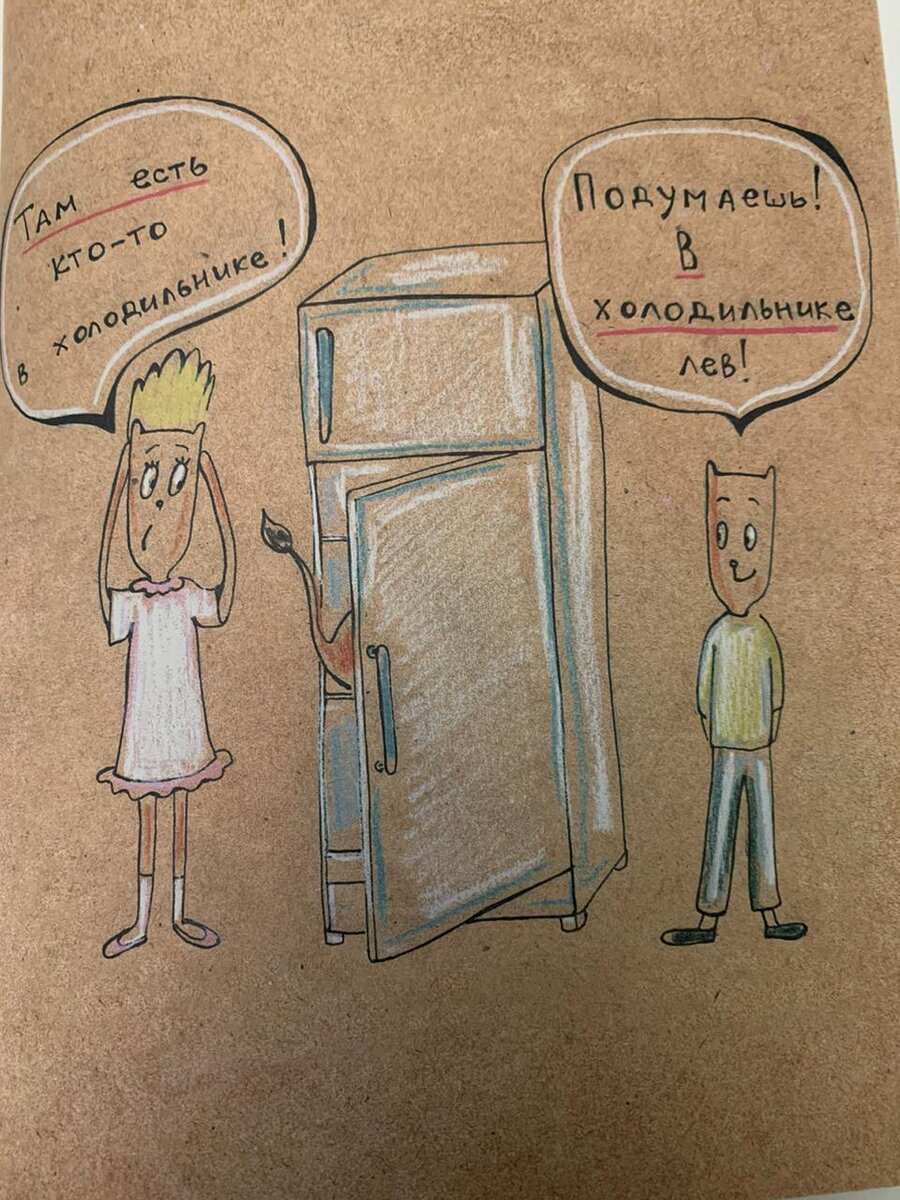 Там есть
кто-то
в холодильнике!
Подумаешь!
В
холодильнике
лев!